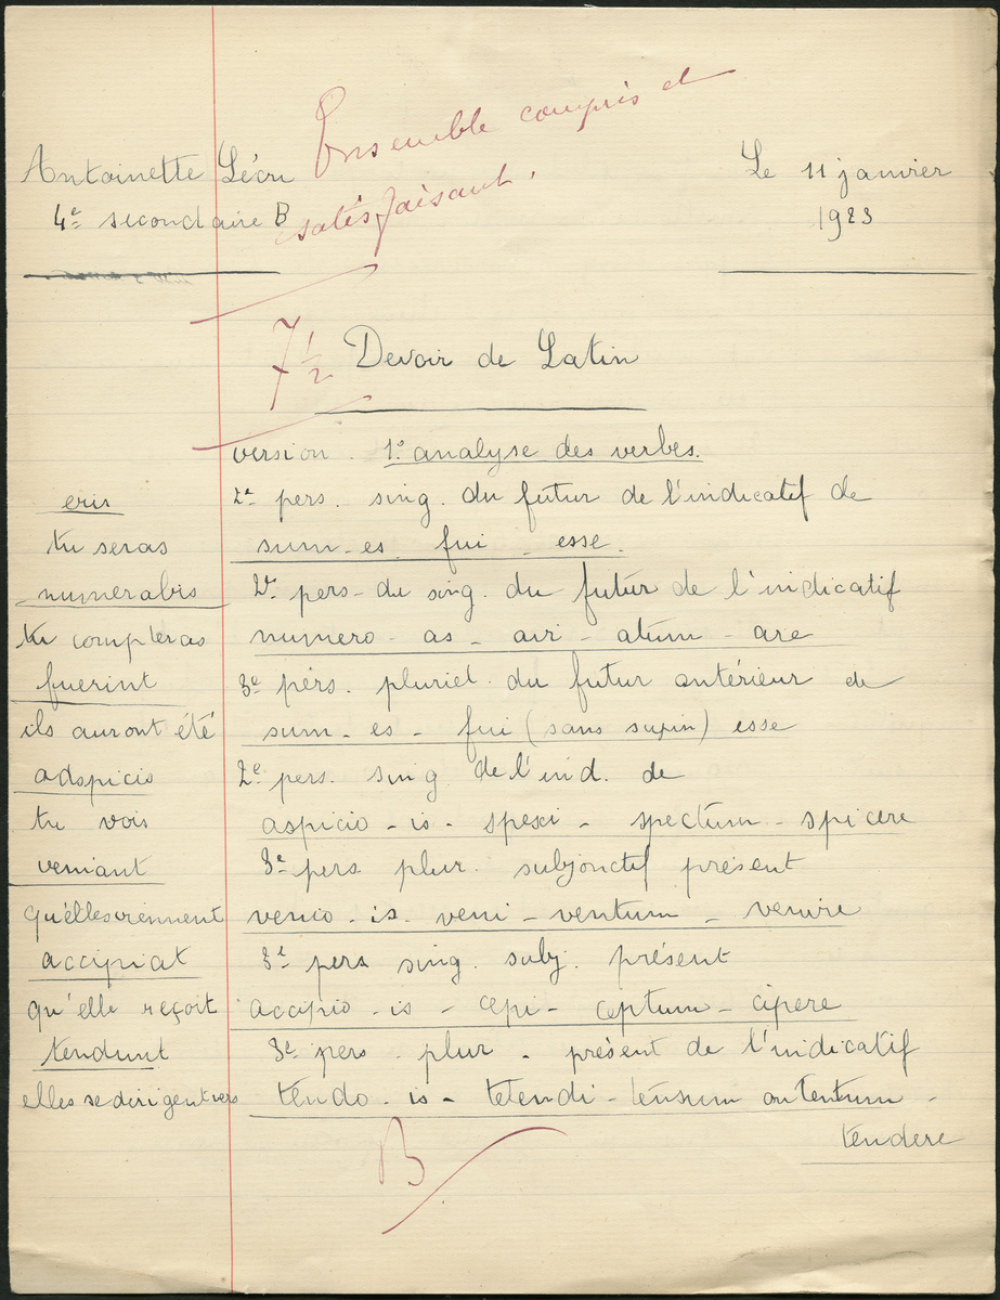 Ensemble compris et
satisfaisant.
Antoinette Lécru
4e secondaire B
Le 11 janvier
1923
7 1/2
Devoir de Latin
version. 1º analyse des verbes.
eris 2e pers. sing. du futur de l'indicatif de
tu seras sum - es fui - esse.
numerabis 2e pers - du sing. du futur de l'indicatif
tu compteras numero - as - avi - atum - are
fuerint 3e pers. pluriel du futur antérieur de
ils auront été sum - es - fui (sans supin) esse
adspicis 2e pers. sing de l'ind. de
tu vois aspicio - is - spexi - spectum - spicere
veniant 3e pers plur. subjonctif présent
qu'elles viennent venio - is - veni - ventum - venire
accipiat 3e pers sing. subj. présent
qu'elle reçoit accipio - is - cepi - ceptum - cipere
tendunt 3e pers. plur - présent de l'indicatif
elles se dirigent vers tendo - is - tetendi - tensum ou tentum -
tendere
B